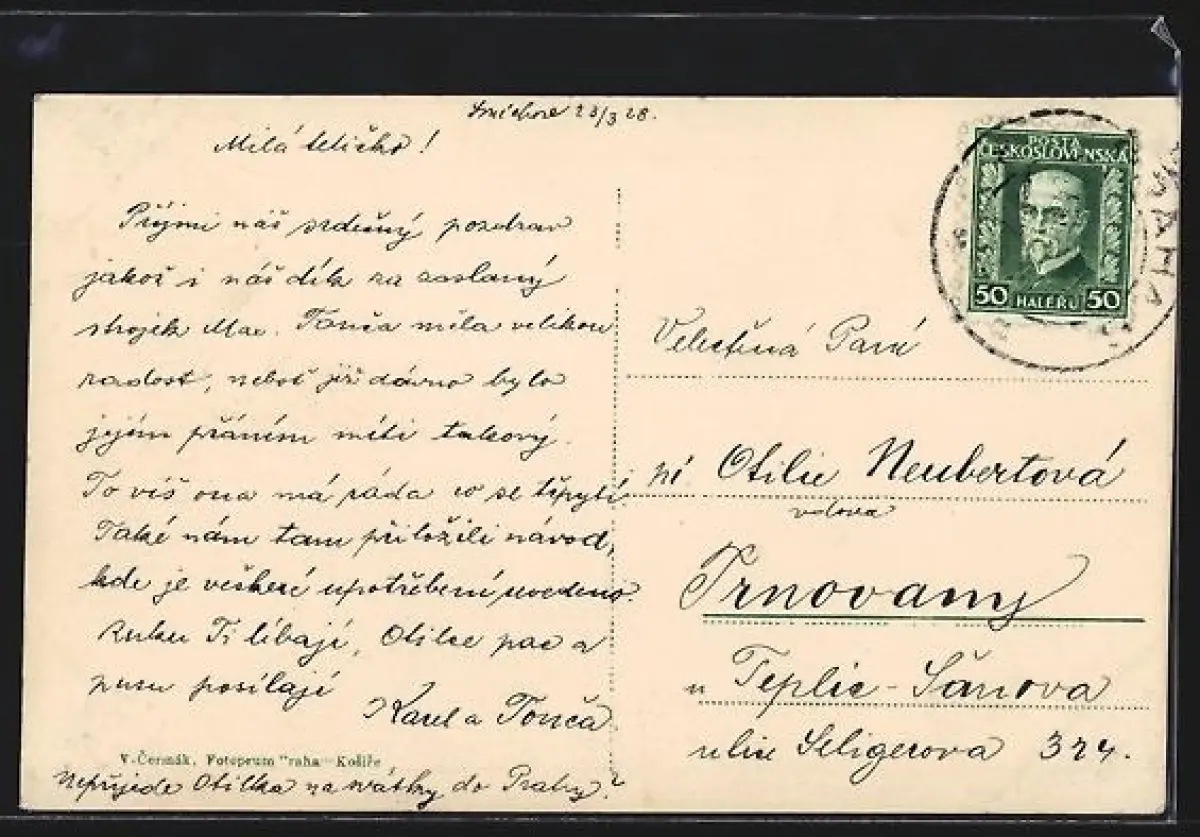 Smíchov 23/3 28.
Milá tetičko!
Přijmi náš srdečný pozdrav
jakož i náš dík za zaslaný
strojek Mae. Tonča měla velikou
radost, neboť již dávno bylo
jejím přáním míti takový.
To víš ona má ráda co se třpytí.
Také nám tam přiložili návod,
kde je veškeré upotřebení uvedeno.
Ruku Ti líbají, Otilce pac a
pusu posílají
Karel a Tonča.
V. Čermák, Fotoprum Praha-Košíře
Nepřijede Otilka na svátky do Prahy?
POŠTA
ČESKOSLOVENSKÁ
50 HALÉŘŮ 50
Velectěná Paní
pí Otilie Neubertová
vdova
Trnovany
u Teplic-Šanova
ulice Seligerova 324.